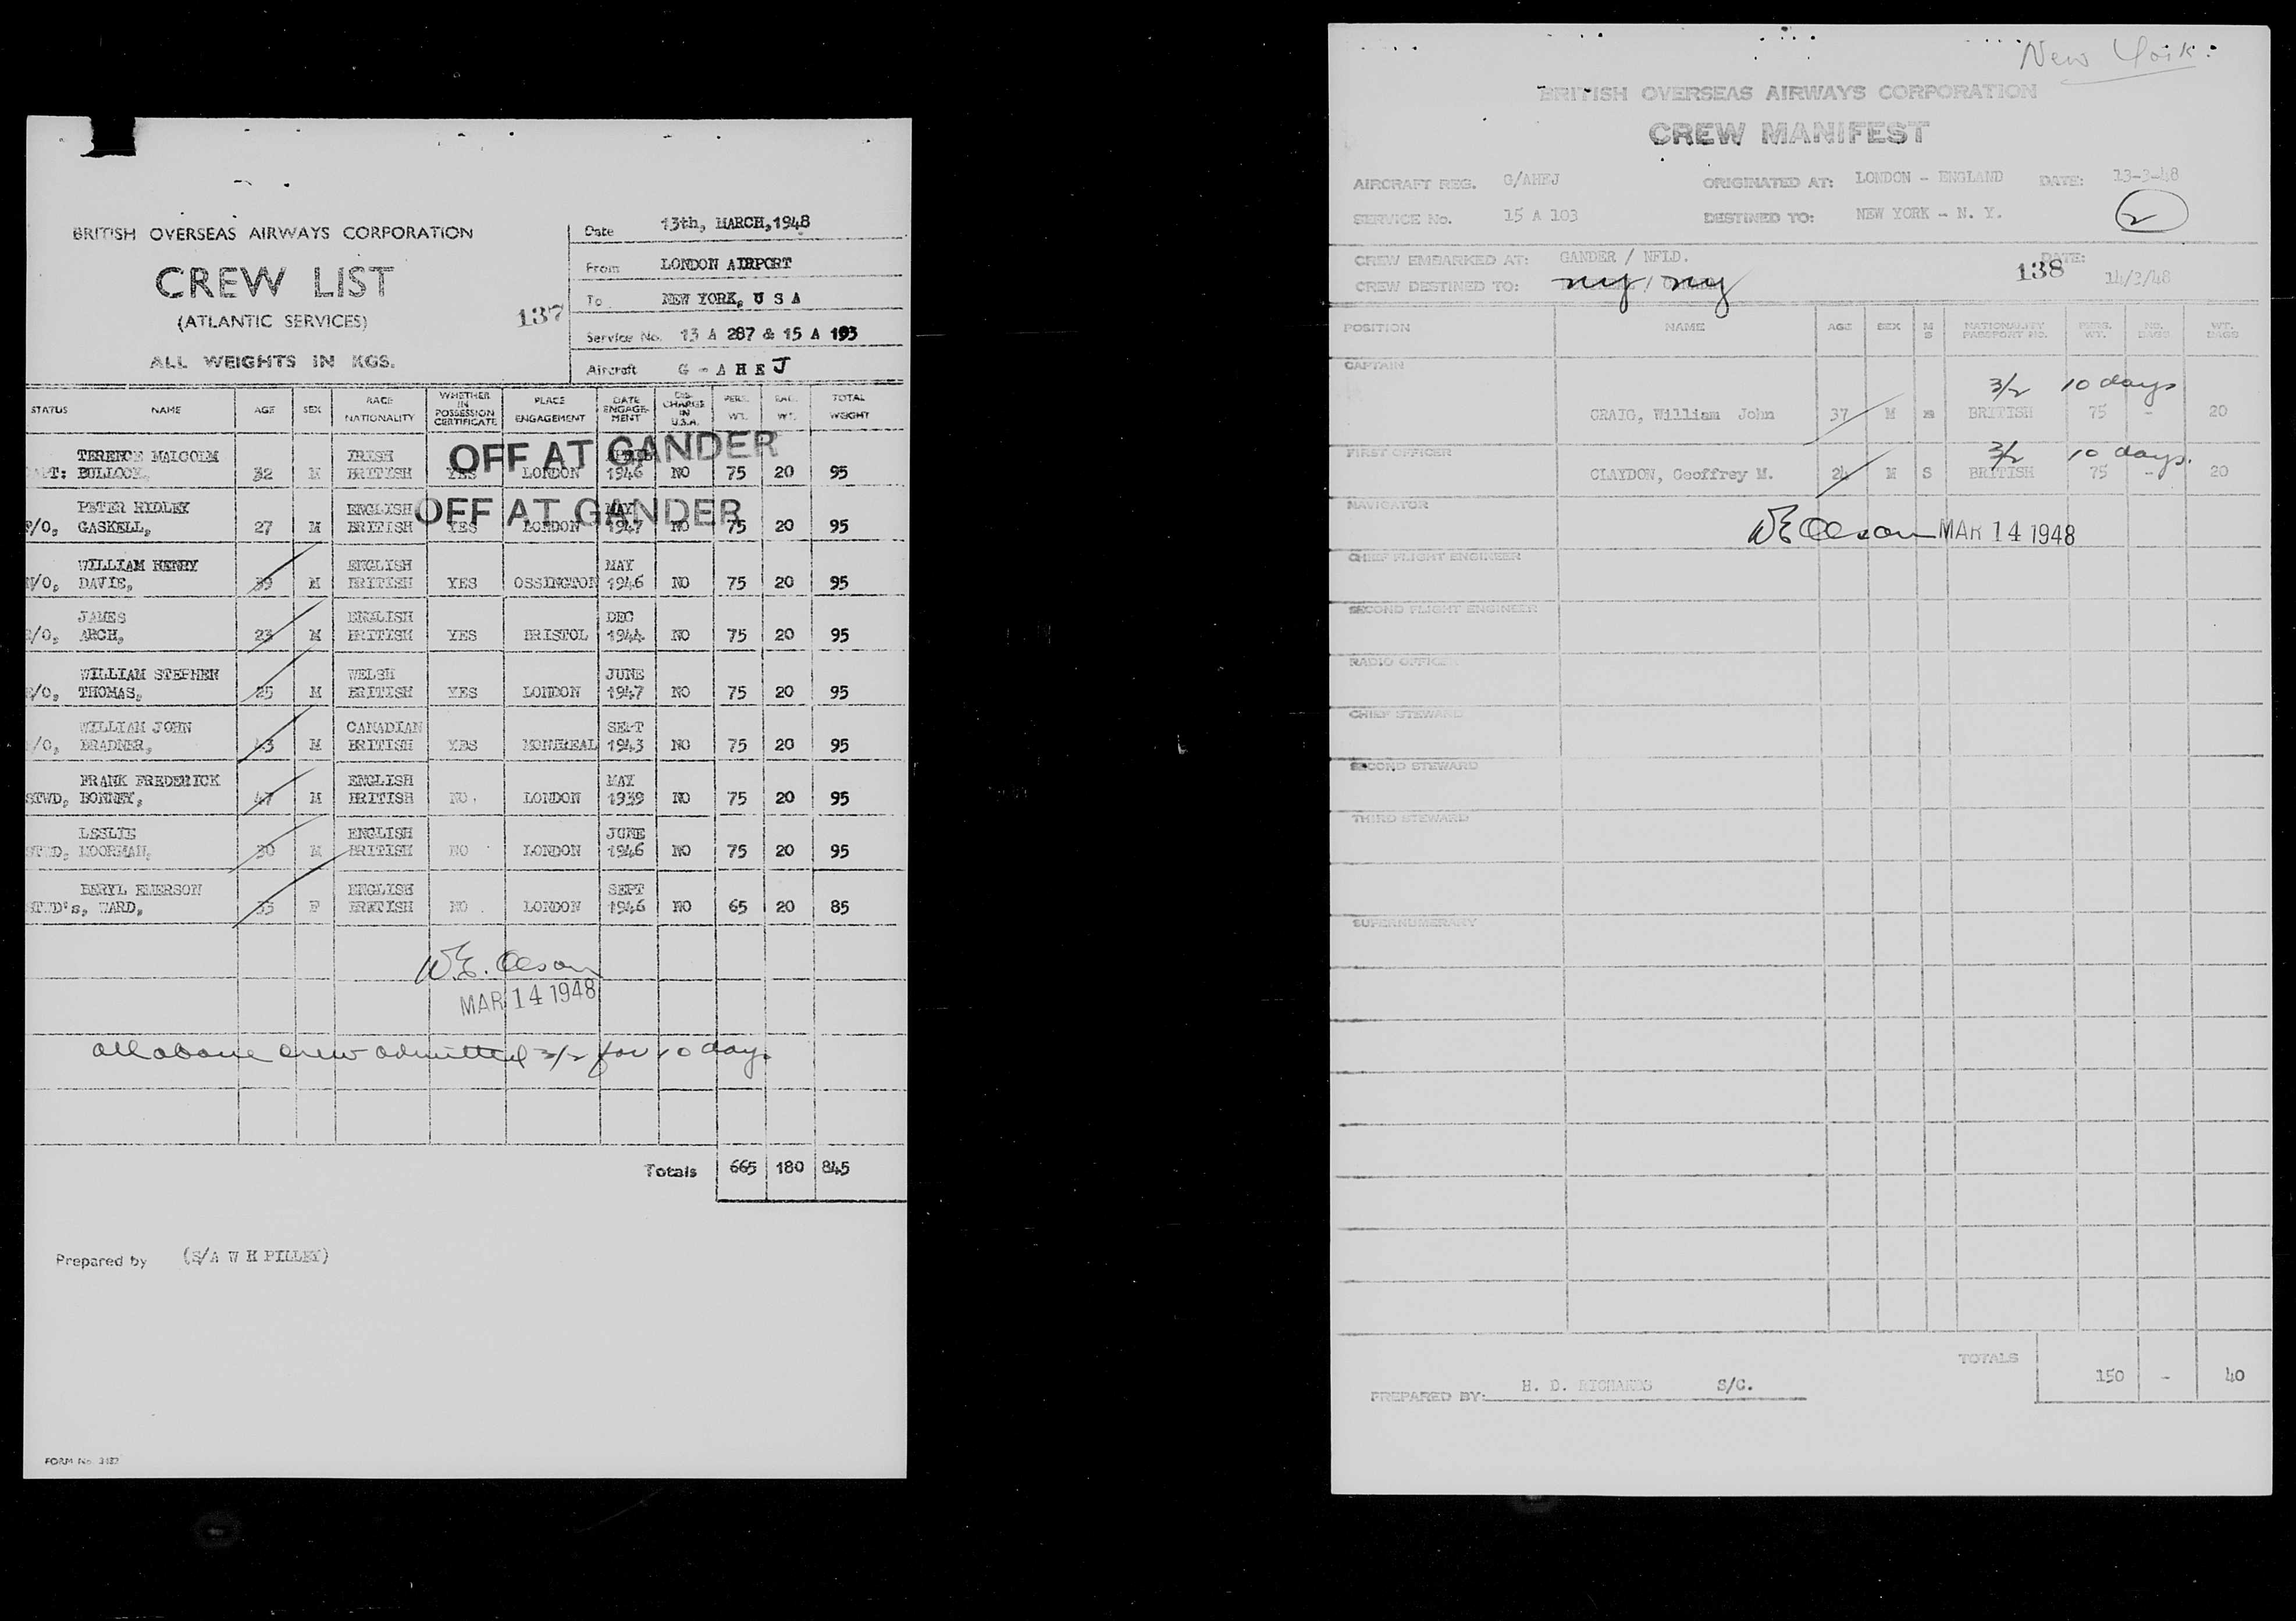 BRITISH OVERSEAS AIRWAYS CORPORATION
CREW LIST
(ATLANTIC SERVICES)
ALL WEIGHTS IN KGS.
137
Date 13th, MARCH, 1948
From LONDON AIRPORT
To NEW YORK, U S A
Service No. 13 A 287 & 15 A 103
Aircraft G - A H E J
STATUS NAME AGE SEX RACE NATIONALITY WHETHER IN POSSESSION CERTIFICATE PLACE ENGAGEMENT DATE ENGAGEMENT DISCHARGE IN U.S.A. PERS. WT. BAG. WT. TOTAL WEIGHT
OFF AT GANDER
TERENCE MALCOLM IRISH
BULLOCK, 32 M BRITISH YES LONDON 1946 NO 75 20 95
OFF AT GANDER
PETER RIDLEY ENGLISH MAY
F/O, GASKELL, 27 M BRITISH YES LONDON 1947 NO 75 20 95
WILLIAM HENRY ENGLISH MAY
/O, DAVIE, 39 M BRITISH YES OSSINGTON 1946 NO 75 20 95
JAMES ENGLISH DEC
/O, ARCH, 23 M BRITISH YES BRISTOL 1944 NO 75 20 95
WILLIAM STEPHEN WELSH JUNE
/O, THOMAS, 25 M BRITISH YES LONDON 1947 NO 75 20 95
WILLIAM JOHN CANADIAN SEPT
/O, BRADNER, 43 M BRITISH YES MONTREAL 1943 NO 75 20 95
FRANK FREDERICK ENGLISH MAY
STWD, BONNEY, 47 M BRITISH NO. LONDON 1939 NO 75 20 95
LESLIE ENGLISH JUNE
STWD, MOORMAN, 30 M BRITISH NO LONDON 1946 NO 75 20 95
BERYL EMERSON ENGLISH SEPT
STWD's, WARD, 33 F BRITISH NO. LONDON 1946 NO 65 20 85
W.E. Olson
MAR 14 1948
all above crew admitted 3/2 for 10 days.
Totals 665 180 845
Prepared by (S/A W H PILLEY)
FORM No 3182
New York:
BRITISH OVERSEAS AIRWAYS CORPORATION
CREW MANIFEST
AIRCRAFT REG. G/AHEJ ORIGINATED AT: LONDON - ENGLAND DATE: 13-3-48
SERVICE No. 15 A 103 DESTINED TO: NEW YORK - N. Y. 2
CREW EMBARKED AT: GANDER / NFLD. DATE:
CREW DESTINED TO: ny / ny 138 14/3/48
POSITION NAME AGE SEX M S NATIONALITY PASSPORT NO. PERS. WT. NO. BAGS WT. BAGS
CAPTAIN
3/2 10 days
CRAIG, William John 37 M BRITISH 75 - 20
FIRST OFFICER 3/2 10 days.
CLAYDON, Geoffrey M. 24 M S BRITISH 75 - 20
NAVIGATOR
WE Olson MAR 14 1948
CHIEF FLIGHT ENGINEER
SECOND FLIGHT ENGINEER
RADIO OFFICER
CHIEF STEWARD
SECOND STEWARD
THIRD STEWARD
SUPERNUMERARY
TOTALS 150 - 40
PREPARED BY: H. D. RICHARDS S/C.